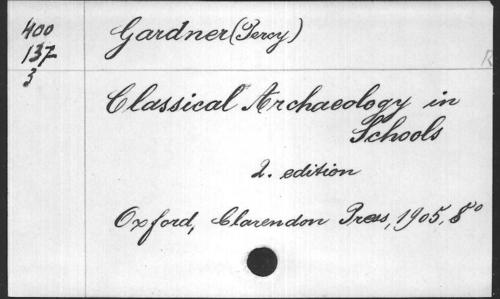 400
137
3
Gardner (Percy)
Classical Archaeology in
Schools
2. edition
Oxford, Clarendon Press, 1905, 8°